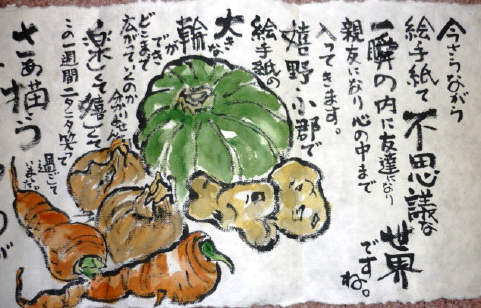 今さらながら
絵手紙て不思議な世界ですね。
一瞬の内に友達になり
親友になり心の中まで
入ってきます。
嬉野小郡で
絵手紙の
大きな
輪が
でき
どこまで
広がっていくのか
楽しくて嬉しくて
この一週間ニタニタ笑って
過ごして
いました。
さあ描こう